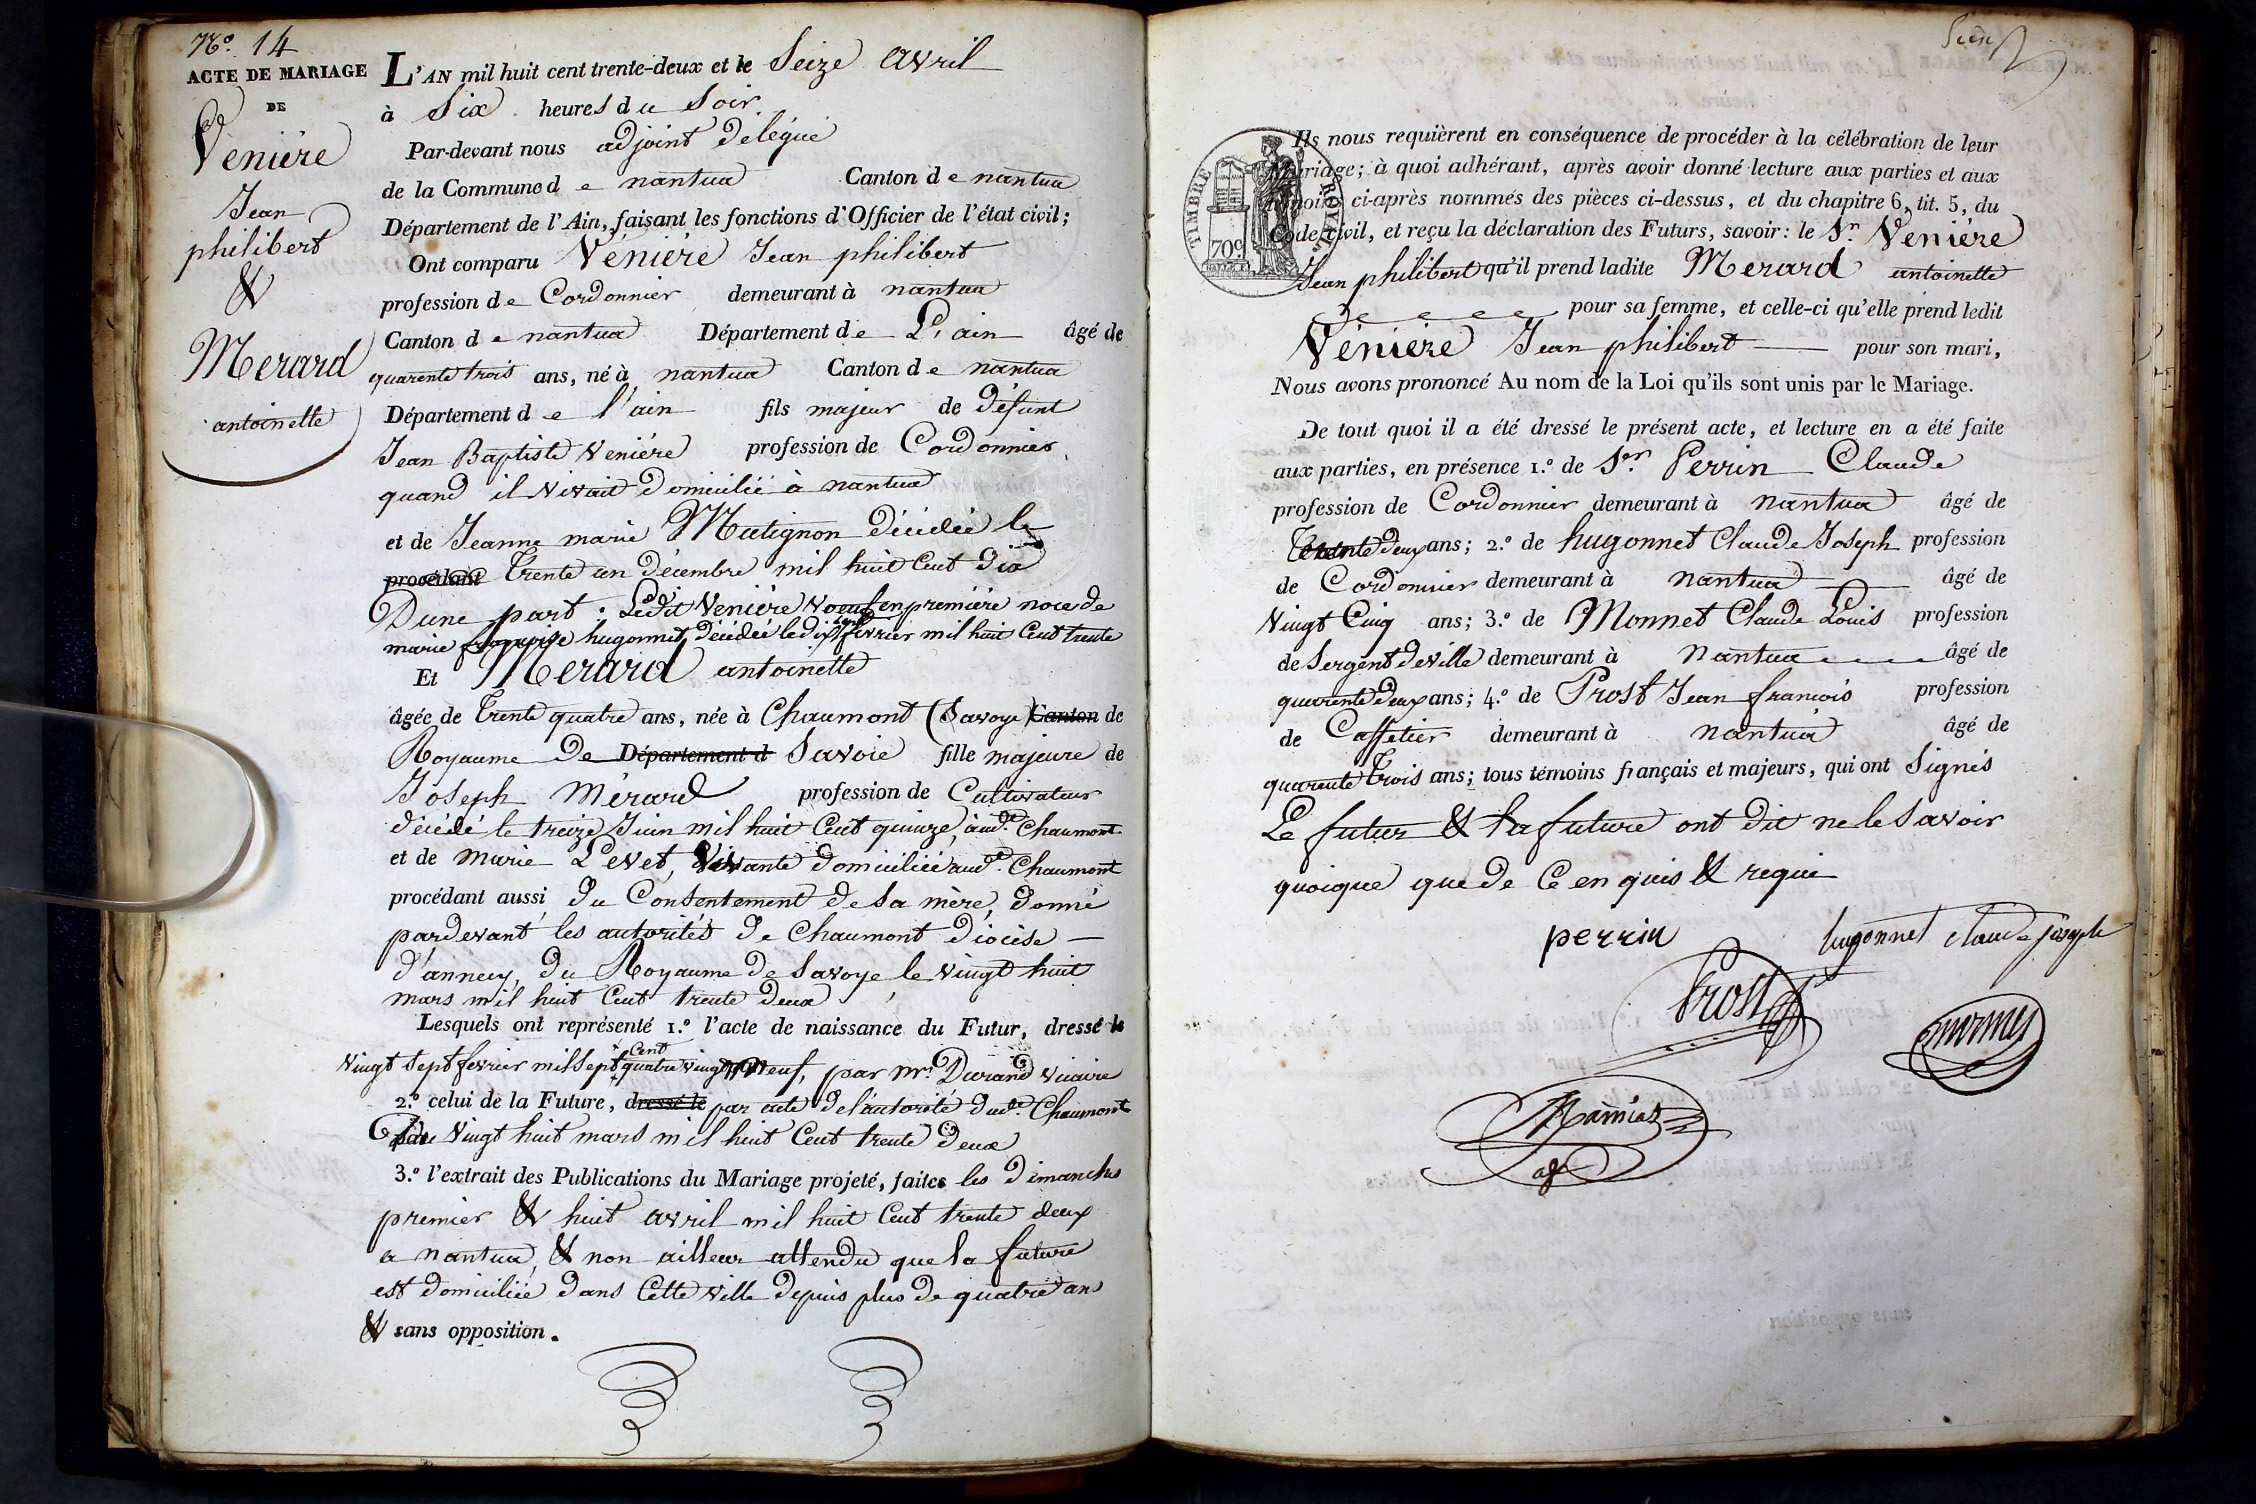 N.º 14
ACTE DE MARIAGE
DE
Veniére
Jean
philibert
&
Merard
antoinette
L'AN mil huit cent trente-deux et le Seize avril
à Six heures du Soir
Par-devant nous adjoint délégué
de la Commune de nantua Canton de nantua
Département de l'Ain, faisant les fonctions d'Officier de l'état civil;
Ont comparu Véniére Jean philibert
profession de Cordonnier demeurant à nantua
Canton de nantua Département de L'ain âgé de
quarente trois ans, né à nantua Canton de nantua
Département de l'ain fils majeur de défunt
Jean Baptiste Veniére profession de Cordonnier
quand il Vivait domicilié à nantua
et de Jeanne marie Matignon décédée le
procédant trente un décembre mil huit Cent dix
Dune part. Ledit Veniére Voeuf en premiére noce de
marie françoise hugonnet, décédée le dix sept fevrier mil huit Cent trente
Et Merard antoinette
âgée de trente quatre ans, née à Chaumont (Savoye) Canton de
Royaume de Département d Savoie fille majeure de
Joseph Mérard profession de Cultivateur
décédé le treize Juin mil huit Cent quinze, aud.t Chaumont
et de marie Levet, Vivante domiciliée aud.t Chaumont
procédant aussi du Consentement de sa mère, donné
pardevant les autorités de Chaumont diocèse
d'annecy, du Royaume de Savoye, le Vingt huit
mars mil huit Cent trente deux
Lesquels ont représenté 1.º l'acte de naissance du Futur, dressé le
Vingt Sept fevrier mil Sept Cent quatre Vingt neuf, par mr. Durand vicaire
2.º celui de la Future, dressé le par acte de l'autorité dud.t Chaumont
du Vingt huit mars mil huit Cent trente deux
3.º l'extrait des Publications du Mariage projeté, faites les dimanches
premier & huit avril mil huit Cent trente deux
a nantua, & non ailleur attendu que la future
est domiciliée dans Cette ville depuis plus de quatre ans
& sans opposition.
TIMBRE ROYAL
70c.
Ils nous requièrent en conséquence de procéder à la célébration de leur
Mariage; à quoi adhérant, après avoir donné lecture aux parties et aux
témoins ci-après nommés des pièces ci-dessus, et du chapitre 6, tit. 5, du
Code civil, et reçu la déclaration des Futurs, savoir: le Sr. Veniére
Jean philibert qu'il prend ladite Merard antoinette
pour sa femme, et celle-ci qu'elle prend ledit
Véniére Jean philibert pour son mari,
Nous avons prononcé Au nom de la Loi qu'ils sont unis par le Mariage.
De tout quoi il a été dressé le présent acte, et lecture en a été faite
aux parties, en présence 1.º de Sr. Perrin Claude
profession de Cordonnier demeurant à nantua âgé de
trente deux ans; 2.º de hugonnet Claude Joseph profession
de Cordonnier demeurant à nantua âgé de
Vingt Cinq ans; 3.º de Monnet Claude Louis profession
de Sergent de ville demeurant à nantua âgé de
quarente deux ans; 4.º de Prost Jean françois profession
de Caffetier demeurant à nantua âgé de
quarente trois ans; tous témoins français et majeurs, qui ont Signés
Le futur & la future ont dit ne le Savoir
quoique que de Ce enquis & requis
perrin hugonnet claude joseph
Prost